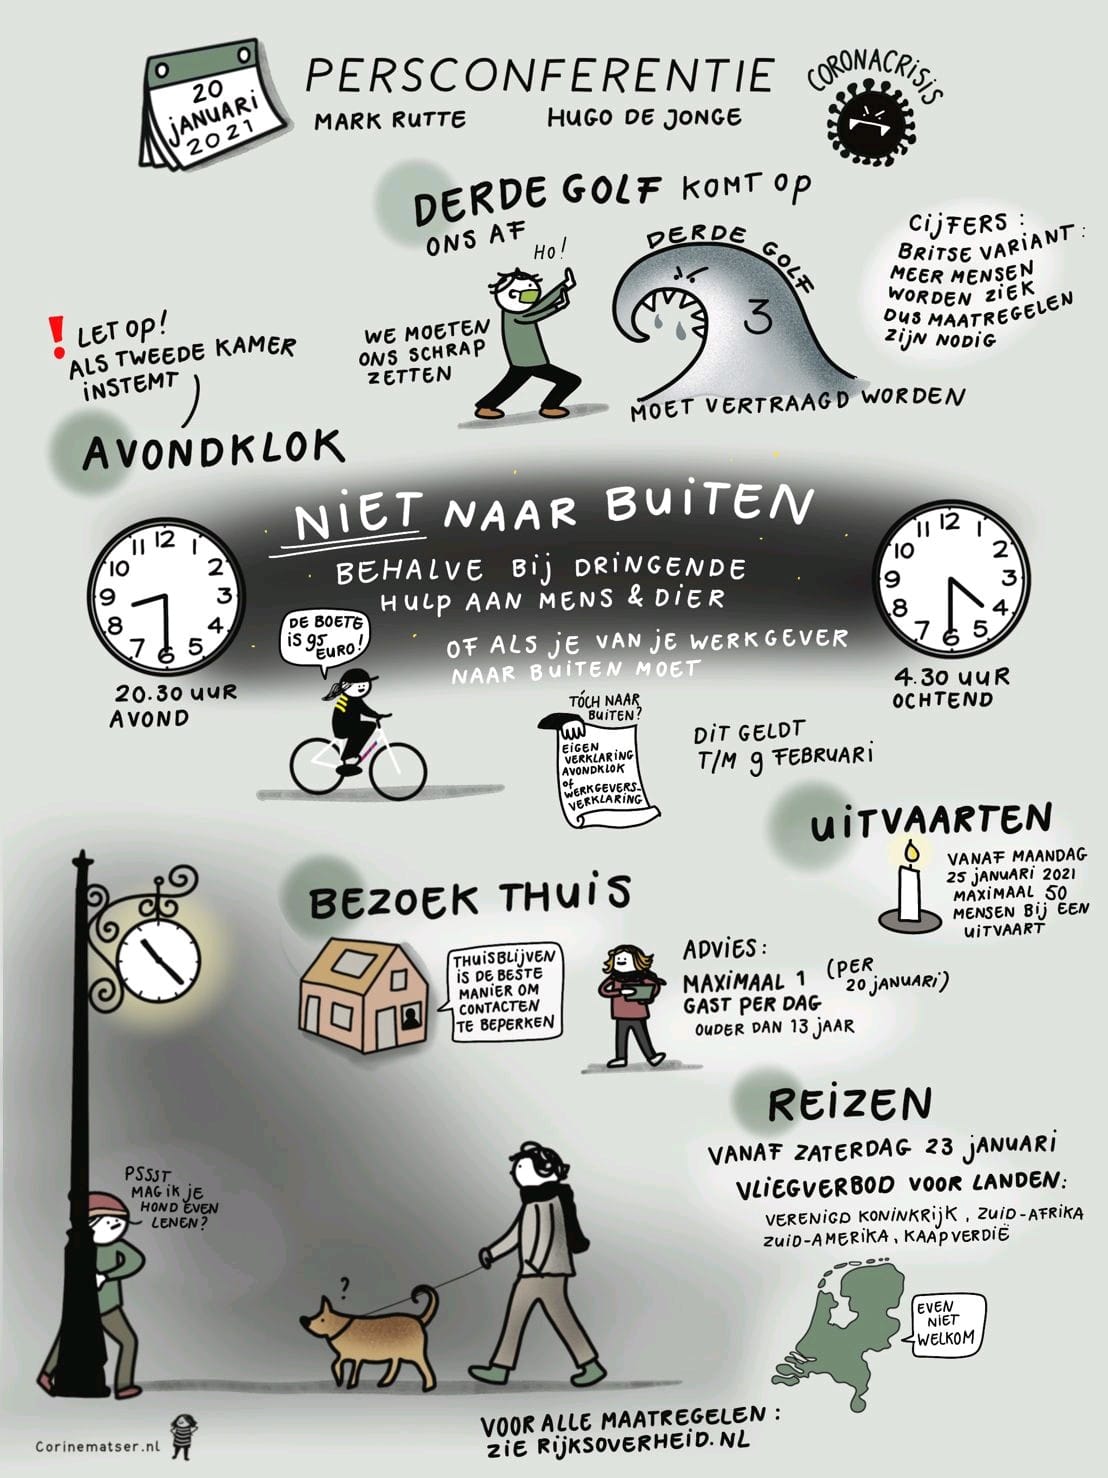 20
JANUARI
2021
PERSCONFERENTIE
MARK RUTTE HUGO DE JONGE
CORONACRISIS
DERDE GOLF KOMT OP
ONS AF
HO!
DERDE GOLF
3
WE MOETEN
ONS SCHRAP
ZETTEN
MOET VERTRAAGD WORDEN
CIJFERS:
BRITSE VARIANT:
MEER MENSEN
WORDEN ZIEK
DUS MAATREGELEN
ZIJN NODIG
! LET OP!
ALS TWEEDE KAMER
INSTEMT
AVONDKLOK
NIET NAAR BUITEN
BEHALVE BIJ DRINGENDE
HULP AAN MENS & DIER
OF ALS JE VAN JE WERKGEVER
NAAR BUITEN MOET
12
1
2
3
4
5
6
7
8
9
10
11
20.30 UUR
AVOND
DE BOETE
IS 95
EURO!
12
1
2
3
4
5
6
7
8
9
10
11
4.30 UUR
OCHTEND
TÓCH NAAR
BUITEN?
EIGEN
VERKLARING
AVONDKLOK
OF
WERKGEVERS-
VERKLARING
DIT GELDT
T/M 9 FEBRUARI
UITVAARTEN
VANAF MAANDAG
25 JANUARI 2021
MAXIMAAL 50
MENSEN BIJ EEN
UITVAART
BEZOEK THUIS
THUISBLIJVEN
IS DE BESTE
MANIER OM
CONTACTEN
TE BEPERKEN
ADVIES:
MAXIMAAL 1 (PER
20 JANUARI)
GAST PER DAG
OUDER DAN 13 JAAR
REIZEN
VANAF ZATERDAG 23 JANUARI
VLIEGVERBOD VOOR LANDEN:
VERENIGD KONINKRIJK, ZUID-AFRIKA
ZUID-AMERIKA, KAAPVERDIË
EVEN
NIET
WELKOM
PSSST
MAG IK JE
HOND EVEN
LENEN?
?
VOOR ALLE MAATREGELEN:
ZIE RIJKSOVERHEID.NL
Corinematser.nl